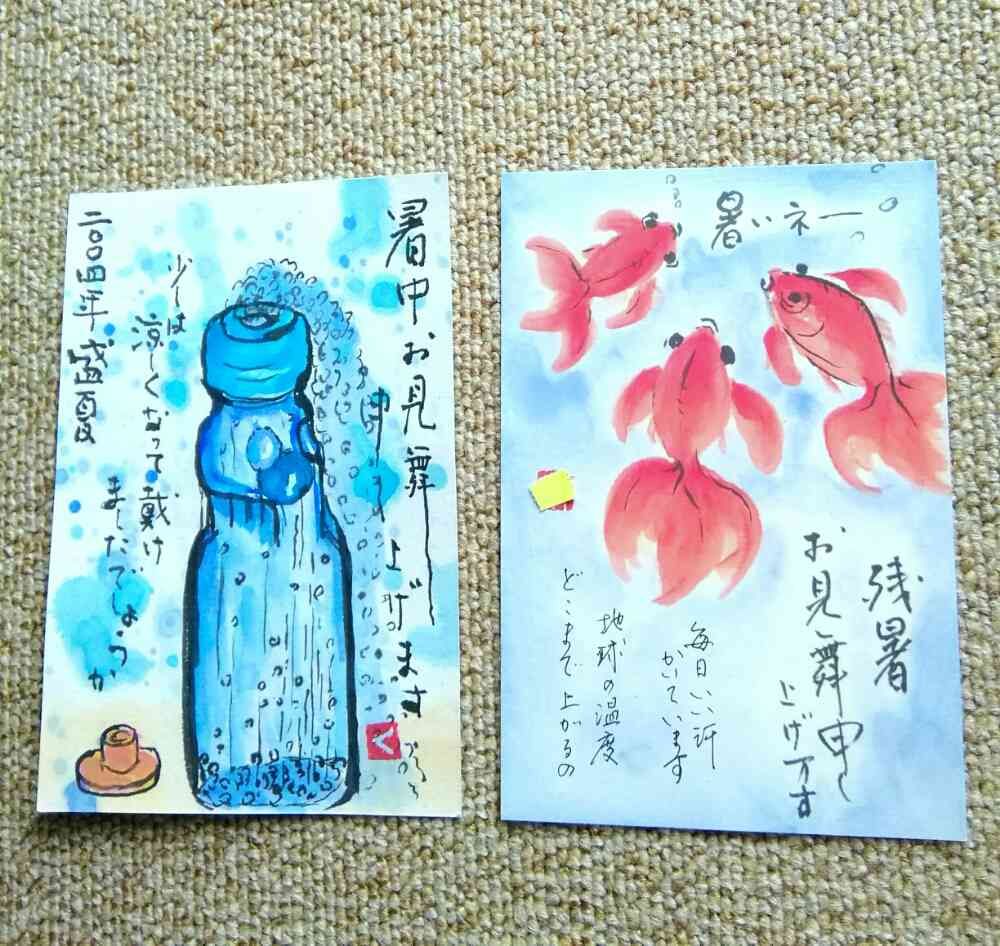 暑中お見舞
申し上げます
少しは
涼しくなって戴け
ましたでしょうか
二〇〇四年盛夏
く
暑いネー。
残暑
お見舞申し
上げます
毎日いい汗
かいています
地球の温度
どこまで上がるの